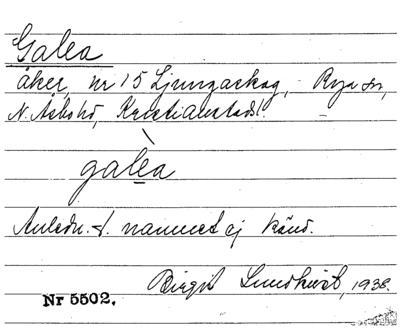 Galea
åker, nr 15 Ljungaskog, Rya sn,
N. Åsbo hd, Kristianstads l.
galèa
Anledn. t. namnet ej känd.
Birgit Lundkvist, 1938.
Nr 5502.